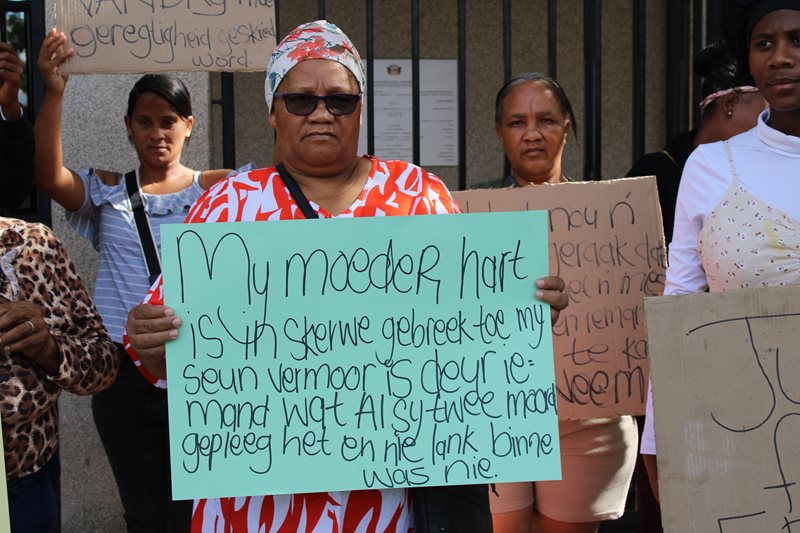 geregtigheid geskied
word.
My moeder hart
is in skerwe gebreek toe my
seun vermoor is deur ie=
mand wat Al sy twee moord
gepleeg het en nie lank binne
was nie.
nou n
geraak dat
n mes
en iemar
te ka
NEEM
JU